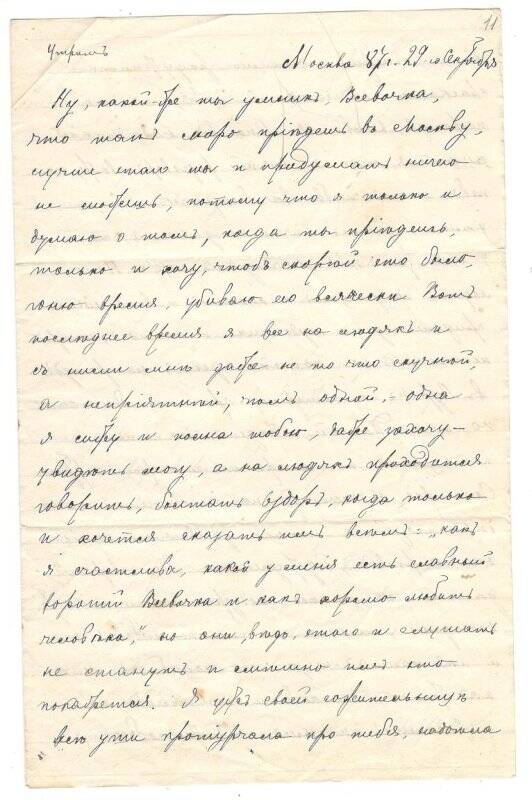 11
Утромъ
Москва 87 г. 29-го Сентября
Ну, какой-же ты умникъ, Всевочка,
что такъ скоро пріѣдешь въ Москву,
лучше этого ты и придумать ничего
не можешь, потому что я только и
думаю о томъ, когда ты пріѣдешь,
только и хочу, чтобъ скорѣй это было,
гоню время, убиваю его всячески. Вотъ
послѣднее время я все на людяхъ и
съ ними мнѣ даже не то что скучнѣй,
а непріятнѣй, чѣмъ одной, - одна
я сижу и полна тобою, даже захочу -
увидѣть могу, а на людяхъ приходится
говорить, болтать вздоръ, когда только
и хочется сказать имъ всѣмъ: „какъ
я счастлива, какой у меня есть славный
Всевочка и какъ хорошо любить
человѣка," но они, вѣдь, этого и слушать
не станутъ и смѣшно имъ это
покажется. Я ужъ своей сожительницѣ
всѣ уши протурчала про тебя, надоѣла